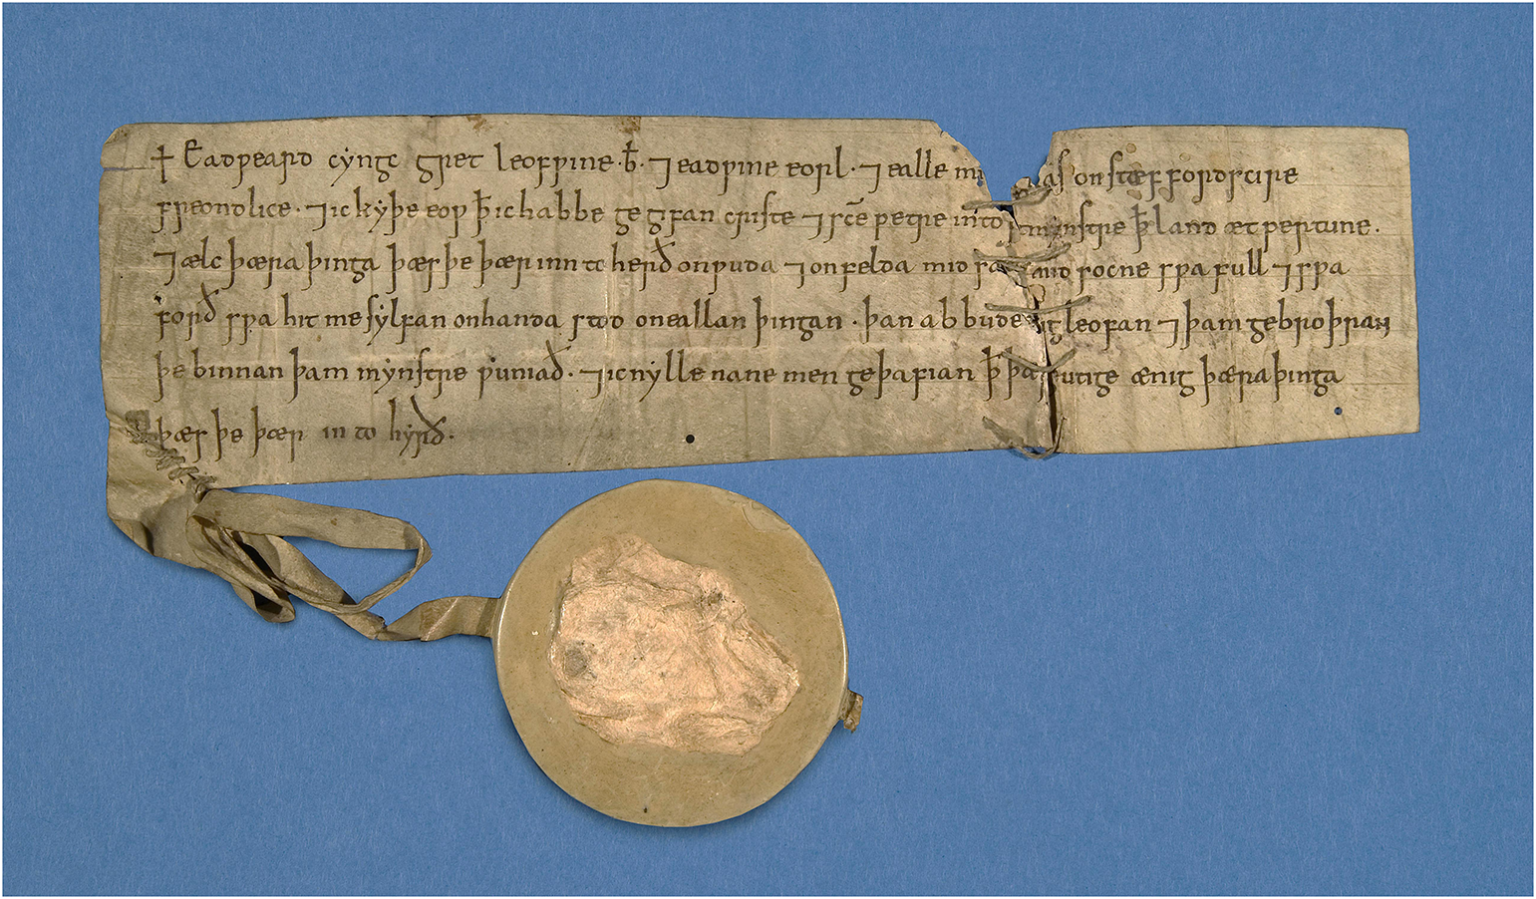 ✝ Eadƿeard cyngc gret leofƿine · b̄ · ⁊ eadƿine eorl · ⁊ ealle mi as on stæffordscire
freondlice · ⁊ ic kyþe eoƿ ꝥ ic habbe gegifan criste ⁊ sc̄e petre into ƿestmynstre ꝥ land æt ƿertune .
⁊ ælc þæra þinga þæs þe þær inn to herð on ƿuda ⁊ on felda mid sa and socne sƿa full ⁊ sƿa
forð sƿa hit me sylfan on handa stod on eallan þingan · þan abbude leofan ⁊ þam gebroþran
þe binnan þam mynstre ƿuniað · ⁊ ic nylle nane men geþafian ꝥ þær utige ænig þæra þinga
þæs þe þær in to hyrð .